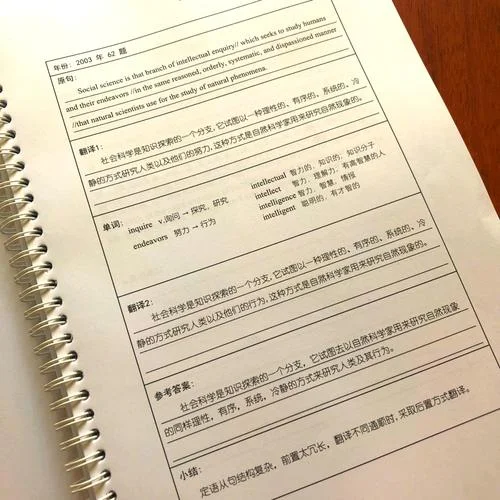 年份：2003 年 62 题
原句：
Social science is that branch of intellectual enquiry// which seeks to study humans
and their endeavors //in the same reasoned, orderly, systematic, and dispassioned manner
//that natural scientists use for the study of natural phenomena.
翻译1：
社会科学是知识探索的一个分支，它试图以一种理性的、有序的、系统的、冷
静的方式研究人类以及他们的努力，这种方式是自然科学家用来研究自然现象的。
单词：
inquire v.询问 → 探究，研究
endeavors 努力 → 行为
intellectual 智力的，知识的；知识分子
intellect 智力，理解力；有高智慧的人
intelligence 智力，智慧，情报
intelligent 聪明的，有才智的
翻译2：
社会科学是知识探索的一个分支，它试图以一种理性的、有序的、系统的、冷
静的方式研究人类以及他们的行为，这种方式是自然科学家用来研究自然现象的。
参考答案：
社会科学是知识探索的一个分支，它试图去以自然科学家用来研究自然现象
的同样理性，有序，系统，冷静的方式来研究人类及其行为。
小结：
定语从句结构复杂，前置太冗长，翻译不同通顺时，采取后置方式翻译。